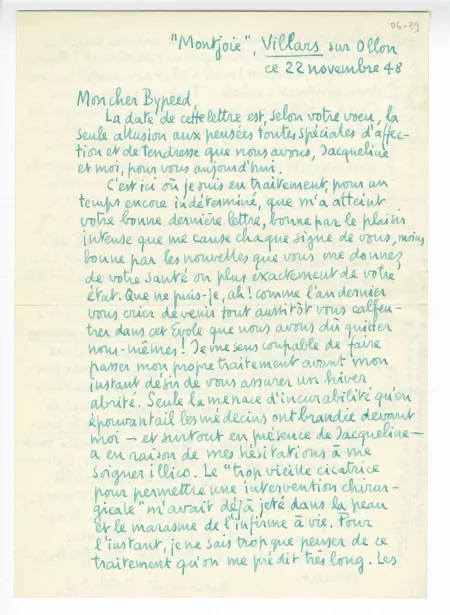 06-29
"Montjoie", Villars sur Ollon
ce 22 novembre 48
Mon cher Bypeed,
La date de cette lettre est, selon votre voeu, la
seule allusion aux pensées toutes spéciales d'affec-
tion et de tendresse que nous avons, Jacqueline
et moi, pour vous aujourd'hui.
C'est ici où je suis en traitement, pour un
temps encore indéterminé, que m'a atteint
votre bonne dernière lettre, bonne par le plaisir
intense que me cause chaque signe de vous, moins
bonne par les nouvelles que vous me donnez
de votre santé ou plus exactement de votre
état. Que ne puis-je, ah! comme l'an dernier
vous crier de venir tout aussitôt vous calfeu-
trer dans cet Evole que nous avons dû quitter
nous-mêmes! Je me sens coupable de faire
passer mon propre traitement avant mon
instant désir de vous assurer un hiver
abrité. Seule la menace d'incurabilité qu'en
épouvantail les médecins ont brandie devant
moi — et surtout en présence de Jacqueline —
a eu raison de mes hésitations à me
soigner illico. Le "trop vieille cicatrice
pour permettre une intervention chirur-
gicale" m'avait déjà jeté dans la peau
et le marasme de l'infirme à vie. Pour
l'instant, je ne sais trop que penser de ce
traitement qu'on me prédit très long. Les